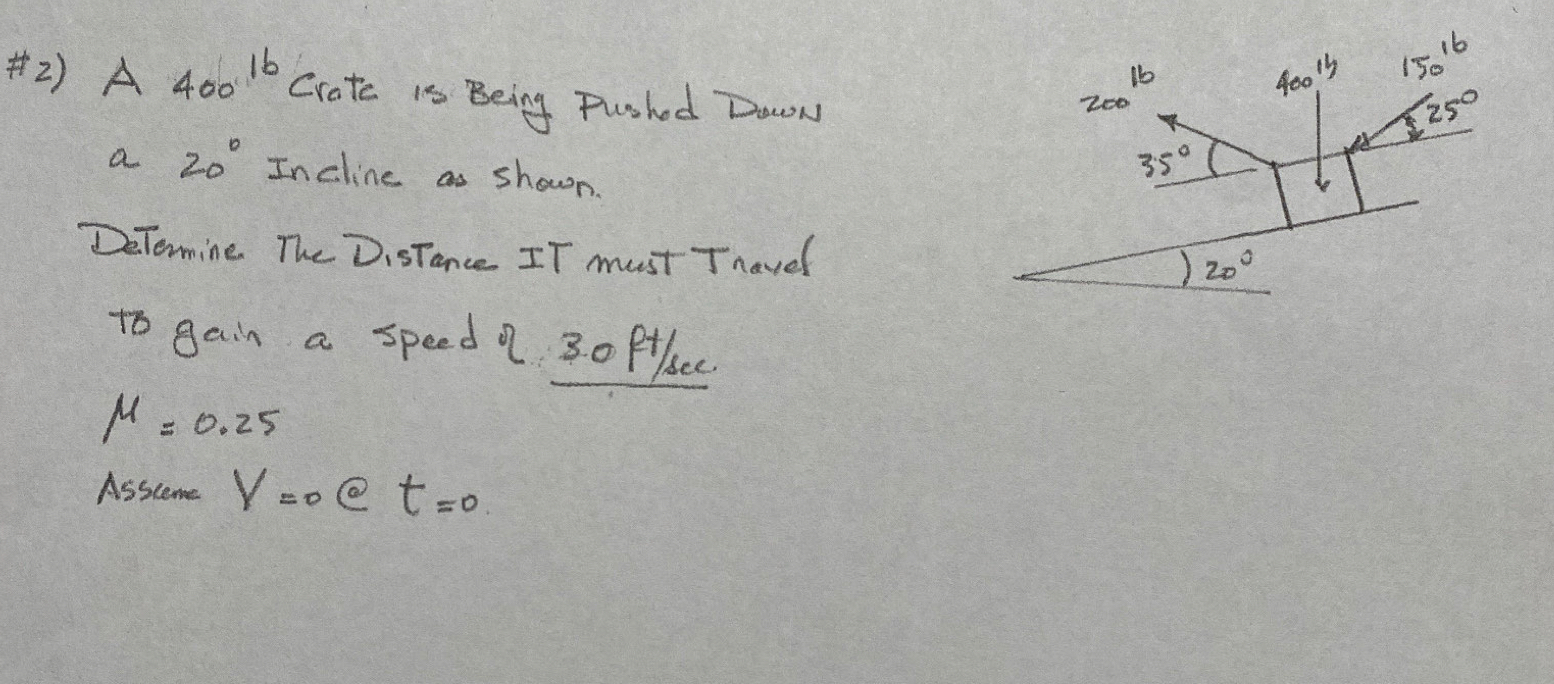 #2) A 400 lb Crate is Being Pushed Down
a 20° Incline as shown.
Determine The Distance IT must Travel
to gain a speed of 30 ft/sec.
μ = 0.25
Assume V=0 @ t=0.
200 lb
400 lb
150 lb
25°
35°
20°